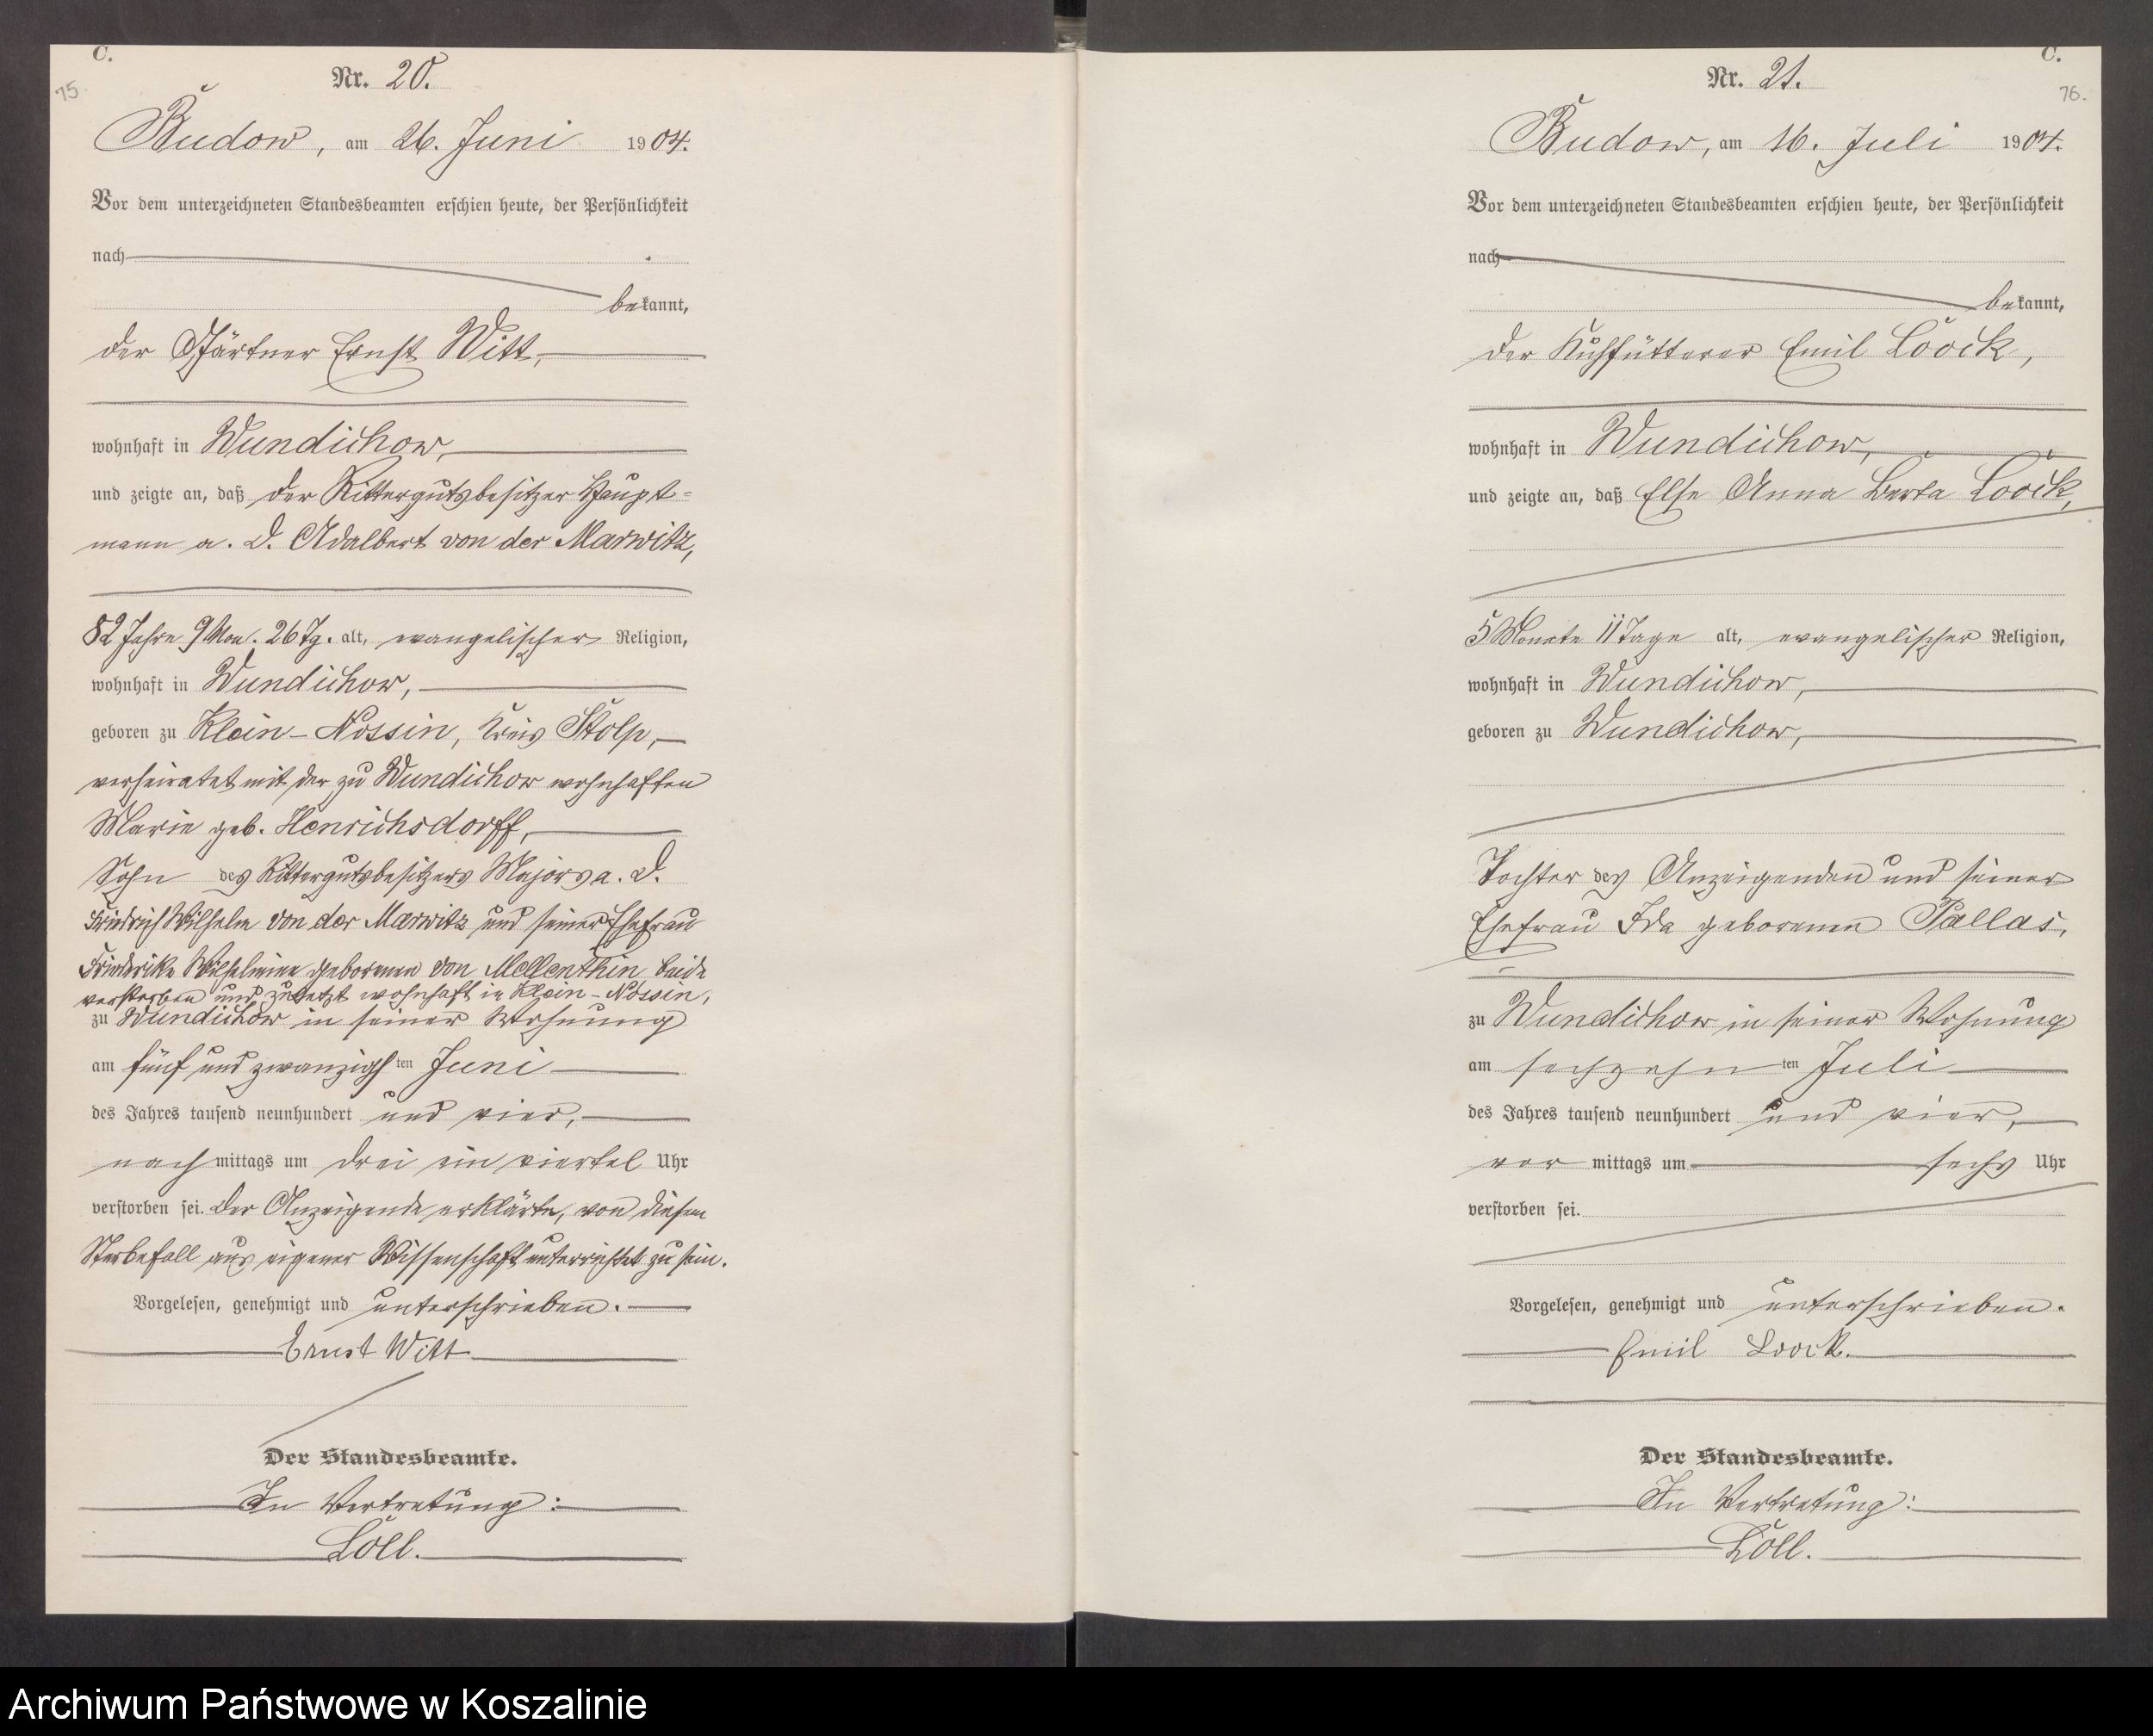 C.
75.
Nr. 20.
Budow, am 26. Juni 1904.
Vor dem unterzeichneten Standesbeamten erschien heute, der Persönlichkeit
nach
bekannt,
der Gärtner Ernst Witt,
wohnhaft in Wundichow,
und zeigte an, daß der Rittergutsbesitzer Haupt-
mann a. D. Adalbert von der Marwitz,
82 Jahre 9 Mon. 26 Tg. alt, evangelischer Religion,
wohnhaft in Wundichow,
geboren zu Klein-Nossin, Kreis Stolp,
verheiratet mit der zu Wundichow wohnhaften
Marie geb. Henrichsdorff,
Sohn des Rittergutsbesitzers Majors a. D.
Friedrich Wilhelm von der Marwitz und seiner Ehefrau
Friederike Wilhelmine geborenen von Mellenthin beide
verstorben und zuletzt wohnhaft in Klein-Nossin,
zu Wundichow in seiner Wohnung
am fünf und zwanzigsten Juni
des Jahres tausend neunhundert und vier,
nachmittags um drei ein viertel Uhr
verstorben sei. Der Anzeigende erklärte, von diesem
Sterbefall aus eigener Wissenschaft unterrichtet zu sein.
Vorgelesen, genehmigt und unterschrieben.
Ernst Witt
Der Standesbeamte.
In Vertretung:
Löll.
C.
76.
Nr. 21.
Budow, am 16. Juli 1904.
Vor dem unterzeichneten Standesbeamten erschien heute, der Persönlichkeit
nach
bekannt,
der Kuhfütterer Emil Loock,
wohnhaft in Wundichow,
und zeigte an, daß Else Anna Berta Loock,
5 Monate 11 Tage alt, evangelischer Religion,
wohnhaft in Wundichow,
geboren zu Wundichow,
Tochter des Anzeigenden und seiner
Ehefrau Ida geborenen Pallas,
zu Wundichow in seiner Wohnung
am sechzehnten Juli
des Jahres tausend neunhundert und vier,
vor mittags um sechs Uhr
verstorben sei.
Vorgelesen, genehmigt und unterschrieben.
Emil Loock.
Der Standesbeamte.
In Vertretung:
Löll.
Archiwum Państwowe w Koszalinie